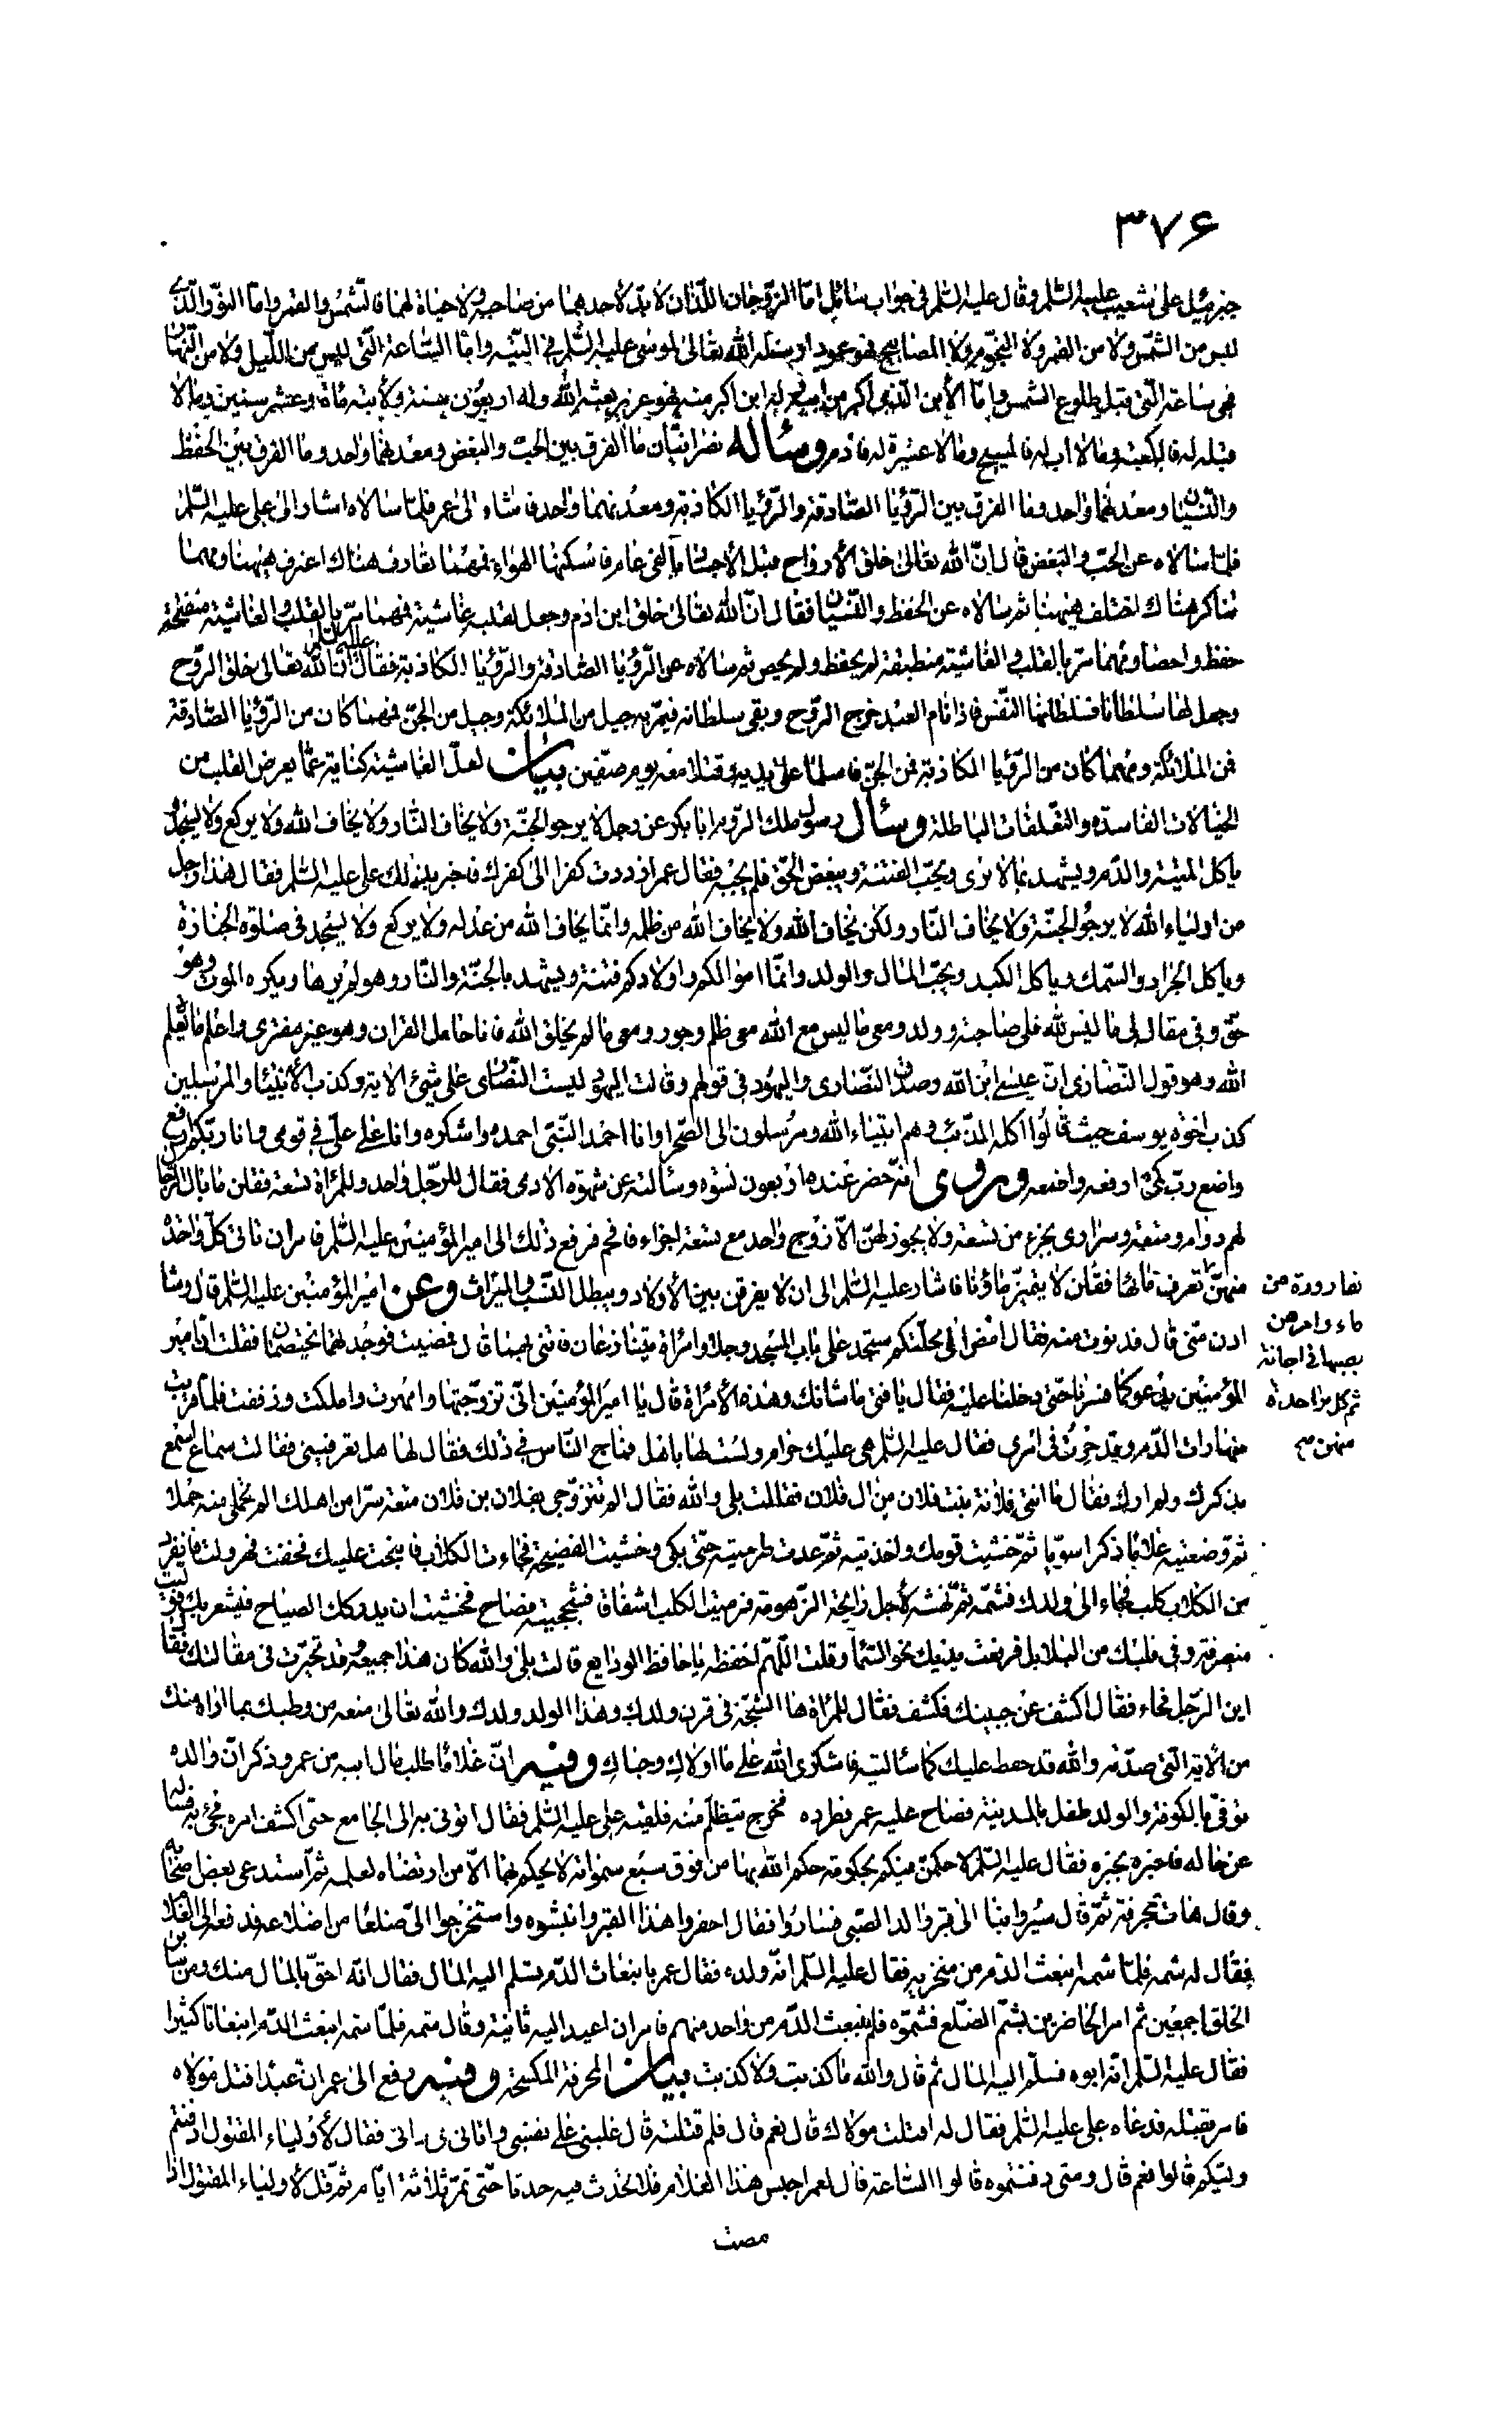 ٣٧۶
جبرئيل على شعيب عليه السّلم وقال عليه السّلم في جواب سائل امّا الزّوجان اللّذان لا بدّ لاحدهما من صاحبه ولا حياة لهما فالشّمس والقمر وامّا النّور الّذى
ليس من الشّمس ولا من القمر ولا النّجوم ولا المصابيح فهو عمود ارسله الله تعالى لموسى عليه السّلم في التيه وامّا السّاعة الّتي ليس من اللّيل ولا من النّهار
فهى ساعة الّتي قبل طلوع الشّمس وامّا الأبن الّذى اكبر من ابيه وله ابن اكبر منه فهو عزير بعثه الله وله اربعون سنة ولأبنه مأة وعشر سنين وما لا
قبلة له فالكعبة وما لا اب له فالمسيح وما لا عشيرة له فادم وسأله نصرانيّان ما الفرق بين الحبّ والبغض ومعدنهما واحد وما الفرق بين الحفظ
والنّسيان ومعدنهما واحد وما الفرق بين الرّؤيا الصّادقة والرّؤيا الكاذبة ومعدنهما واحد فاشاء الى عمر فلمّا سالاه اشار الى على عليه السّلم
فلمّا سالاه عن الحبّ والبغض قال انّ الله تعالى خلق الأرواح قبل الأجساد بألفى عام فاسكنها الهواء فمهما تعارف هناك اعترف هيهنا ومهما
تناكر هناك اختلف هيهنا ثم سالاه عن الحفظ والنّسيان فقال انّ الله تعالى خلق ابن ادم وجعل لقلبه غاشية فمهما مرّ بالقلب والغاشية منفتحة
حفظ واحصا ومهما مرّ بالقلب والغاشية منطبقة لم يحفظ ولم يحص ثم سالاه عن الرّؤيا الصّادقة والرّؤيا الكاذبة فقال عليه السّلم انّ الله تعالى خلق الرّوح
وجعل لها سلطانا فسلطانها النّفس فاذا نام العبد خرج الرّوح وبقى سلطانه فيمرّ به جيل من الملائكة وجيل من الجنّ فمهما كان من الرّؤيا الصّادقة
فمن الملائكة ومهما كان من الرّؤيا الكاذبة فمن الجنّ فاسلما على يديه وقتلا معه يوم صفّين بيان لعلّ الغاشية كناية عمّا يعرض القلب من
الخيالات الفاسدة والتعلّقات الباطلة وسأل رسول ملك الرّوم ابا بكر عن رجل لا يرجو الجنّة ولا يخاف النّار ولا يخاف الله ولا يركع ولا يسجد و
ياكل الميتة والدّم ويشهد بما لا يرى ويحبّ الفتنة ويبغض الحقّ فلم يجبه فقال عمر ازددت كفرا الى كفرك فاخبر بذلك على عليه السّلم فقال هذا رجل
من اولياء الله لا يرجو الجنّة ولا يخاف النّار ولكن يخاف الله ولا يخاف الله من ظلمه وانّما يخاف الله من عدله ولا يركع ولا يسجد فى صلوة الجنازة
وياكل الجراد والسّمك وياكل الكبد ويحبّ المال والولد وانّما اموالكم واولادكم فتنة ويشهد بالجنّة والنّار وهو لم يرها ويكره الموت وهو
حقّ وفي مقال لى ما ليس لله فلى صاحبة وولد ومعى ما ليس مع الله معى ظلم وجور ومعى ما لم يخلق الله فانا حامل القران وهو غير مفترى واعلم ما لم يعلم
الله وهو قول النّصارى انّ عيسى ابن الله وصدّق النّصارى واليهود فى قولهم وقالت اليهود ليست النّصارى على شئ الاية وكذب الأنبياء والمرسلين
كذب اخوة يوسف حيث قالوا اكله الذّئب وهم انبياء الله ومرسلون الى الصّحرا وانا احمد النّبى احمده واشكره وانا على علىّ فى قومى وانا ربّكم ارفع
واضع ربّ كمّى ارفعه واضعه وروى انّه حضر عنده اربعون نسوة وسألنه عن شهوة الادمى فقال للرّجل واحد وللمرأة تسعة فقلن ما بال الرّجال
لهم دوام ومتعة وسرارى بجزء من تسعة ولا يجوز لهنّ الّا زوج واحد مع تسعة اجزاء فافحم فرفع ذلك الى امير المؤمنين عليه السّلم فامر ان تاتى كلّ واحدة
منهنّ تعرف ماءها فقلن لا يتميّز ماؤنا فاشار عليه السّلم الى ان لا يفرقن بين الأولاد ويبطل النّسب والميراث وعن امير المؤمنين عليه السّلم قال وشا
بقارورة من
ماء وامرهن
بصبها فى اجانة
ثم كل واحدة
منهن صح
ادن منّى قال فدنوت منه فقال امض الى محلّتكم ستجد على باب المسجد رجلا وامرأة يتنازعان فاتنى بهما قال فمضيت فوجدتهما يختصمان فقلت انّ امير
المؤمنين يدعوكما فسرنا حتى دخلنا عليه فقال يا فتى ما شانك وهذه الأمرأة قال يا امير المؤمنين انّى تزوّجتها وامهرت واملكت وزففت فلمّا قربت
منها رات الدّم وقد حرت فى امرى فقال عليه السّلم هى عليك حرام ولست لها باهل فماج النّاس فى ذلك فقال لها هل تعرفينى فقالت سماع اسمع
بذكرك ولم ارك فقال فانت فلانة بنت فلان من ال فلان فقالت بلى والله فقال الم تتزوّجى بفلان بن فلان متعة سرّا من اهلك الم تحملى منه حملا
ثمّ وضعتيه غلاما ذكرا سويّا ثمّ خشيت قومك واهلك فاخذتيه ثمّ عدت طرحتيه حتّى بكى وخشيت الفضيحة فجاءت الكلاب فانبحت عليك فخفت فهرولت فانفرد
من الكلاب كلب فجاء الى ولدك فشمّه ثمّ نهشه لأجل رايحة الزّهومة فرميت الكلب اشفاقا فشججتيه فصاح فخشيت ان يدركك الصياح فيشعر بك فولّيت
منصرفة وفى قلبك من البلابل فرفعت يديك نحو السّماء وقلت اللّهم احفظه يا حافظ الودايع قالت بلى والله كان هذا جميعه وقد تحيّرت فى مقالتك فقال
اين الرّجل فجاء فقال اكشف عن جبينك فكشف فقال للمرأة ها الشجّة فى قرن ولدك وهذا الولد ولدك والله تعالى منعه من وطيك بما اراه منك
من الأية الّتى صدّته والله قد حفظ عليك كما سألتيه فاشكرى الله على ما اولاك وحباك وفيه انّ غلاما طلب مال ابيه من عمر وذكر انّ والده
توفّى بالكوفة والولد طفل بالمدينة فصاح عليه عمر وطرده فخرج يتظلّم منه فلقيه على عليه السّلم فقال ائتونى به الى الجامع حتّى اكشف امره فجئ به فساله
عن حاله فاخبره بخبره فقال عليه السّلم لاحكمنّ فيكم بحكومة حكم الله بها من فوق سبع سمواته لا يحكم بها الّا من ارتضاه لعلمه ثمّ استدعى بعض اصحابه
وقال هات مجرفة ثمّ قال سيروا بنا الى قبر والد الصّبى فساروا فقال احفروا هذا القبر وانبشوه واستخرجوا الىّ ضلعا من اضلاعه فدفعه الى الغلام
فقال له شمّه فلمّا شمّه انبعث الدّم من منخريه فقال عليه السّلم انّه ولده فقال عمر بانبعاث الدّم تسلّم اليه المال فقال انّه احقّ بالمال منك ومن سائر
الخلق اجمعين ثم امر الحاضرين بشمّ الضّلع فشمّوه فلم ينبعث الدّم من واحد منهم فامر ان اعيد اليه ثانية وقال شمّه فلمّا شمّه انبعث الدّم انبعاثا كثيرا
فقال عليه السّلم انّه ابوه فسلّم اليه المال ثم قال والله ما كذبت ولا كذبت بيان المجرفة المكسحة وفيه رفع الى عمر ان عبدا قتل مولاه
فامر بقتله فدعاه على عليه السّلم فقال له اقتلت مولاك قال نعم قال فلم قتلته قال غلبنى على نفسى واتانى فى ذاتى فقال لأولياء المقتول ادفنتم
وليّكم قالوا نعم قال ومتى دفنتموه قالوا السّاعة قال لعمر احبس هذا الغلام فلا تحدث فيه حدثا حتّى تمرّ ثلاثة ايّام ثمّ قل لأولياء المقتول اذا
مضت